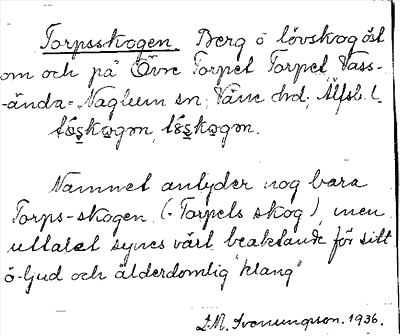 Torpsskogen. Berg o lövskog öst
om och på Övre Torpet Torpet Vass-
-ända- Naglum sn; Väne hd; Älfsb. l.
tǿskogon, tǿskogon.
Namnet antyder nog bara
Torps-skogen (- Torpets skog), men
uttalet synes värt beaktande för sitt
ö-ljud och ålderdomlig "klang"
D.M. Svenungsson. 1936.